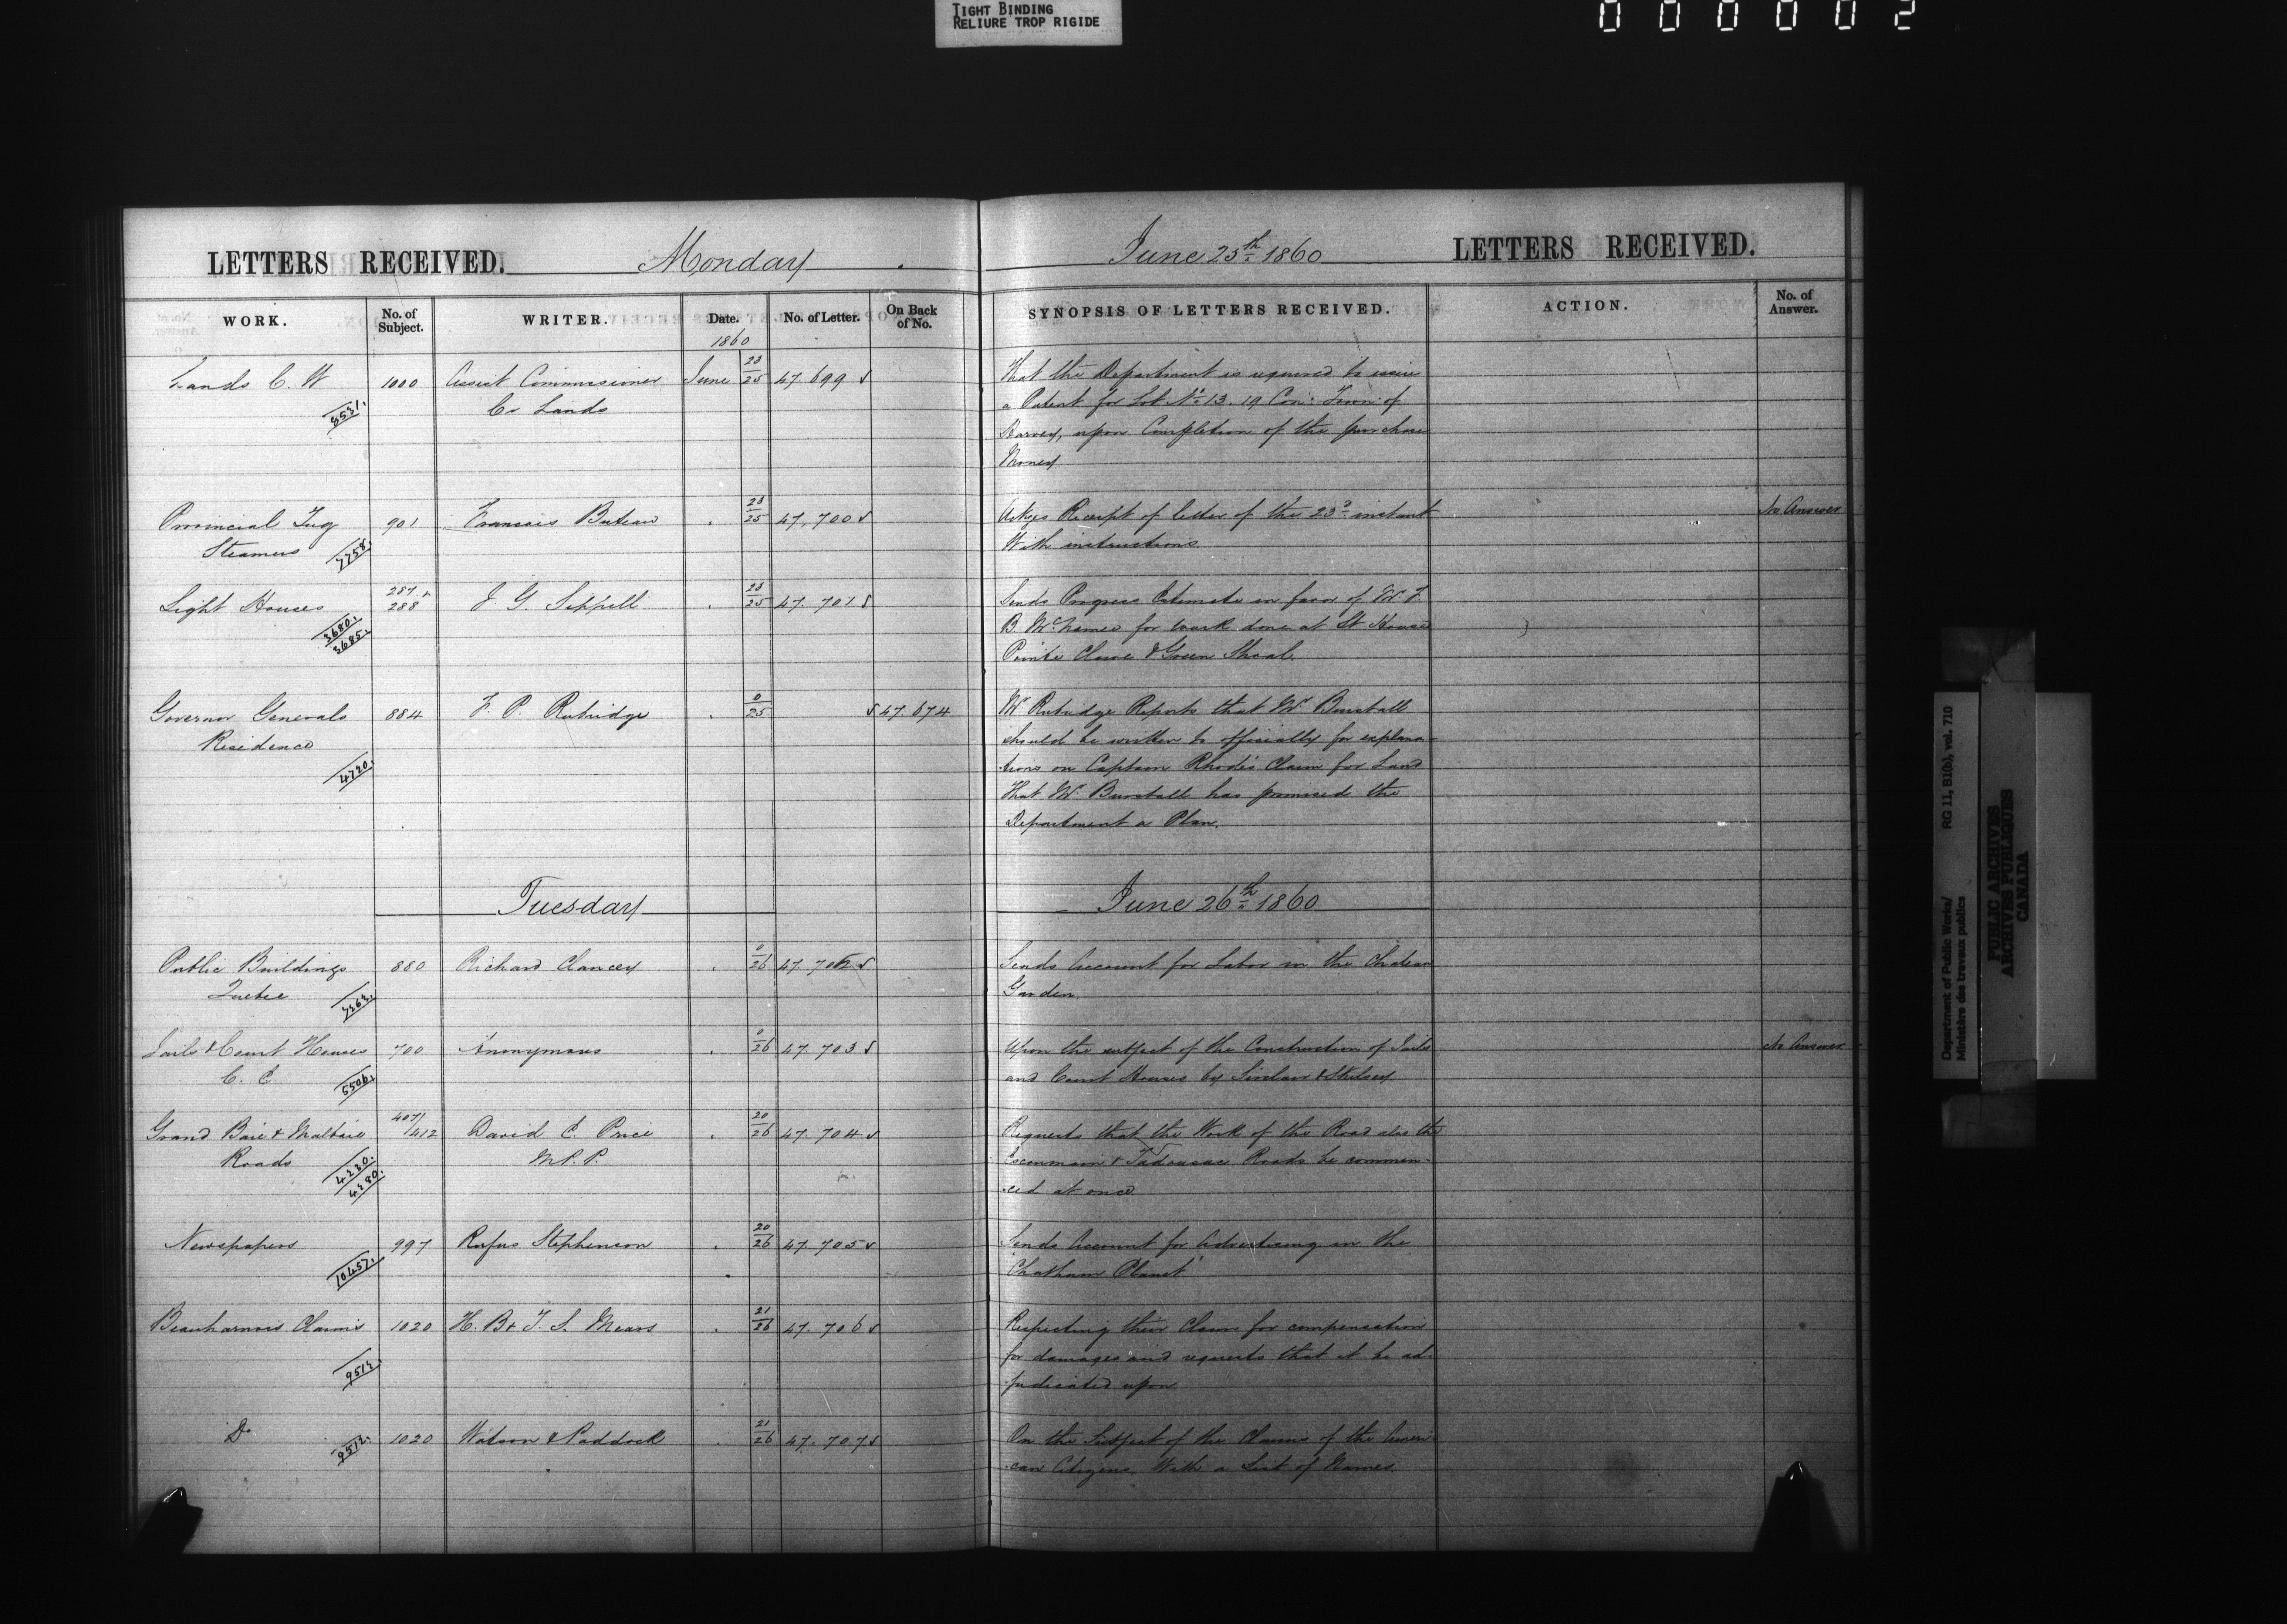 TIGHT BINDING
RELIURE TROP RIGIDE
0 0 0 0 0 2
LETTERS RECEIVED. Monday June 25th 1860 LETTERS RECEIVED.
WORK. No. of Subject. WRITER. Date. No. of Letter. On Back of No. SYNOPSIS OF LETTERS RECEIVED. ACTION. No. of Answer.
1860
Lands C. W 1000 Assist Commissioner June 23/25 47.699 That the Department is required to issue
Cr Lands a Patent for Lot No 13. 19 Con: Town: of
upon Completion of the purchase
Money
Provincial Tug 901 Francois Buteau 23/25 47,700 Ackges Receipt of letter of the 23d instant No Answer
Steamers 7758. With instructions
Light Houses 287 + 288 J. G. Sippell 23/25 47.701 Sends Progress Estimate in favor of
3680. 3685. B. McNamee for work done at Lt House
Pointe Claire & Green Shoal.
Governor Generals 884 F. P. Rubridge 0/25 47.674 Mr Rubridge Reports that Mr Burstall
Residence should be written to officially for explana-
4720. tions on Captain Rhodes Claim for Land
That Mr Burstall has promised the
Department a Plan.
Tuesday June 26th 1860
Public Buildings 880 Richard Clancey 0/26 47.702 Sends Account for Labor in the Chateau
Quebec Garden
Jails & Court Houses 700 Anonymous 0/26 47.703 Upon the subject of the Construction of Jails No Answer
C. E 5506. and Court Houses by Sinclair & Skelsey
Grand Baie & Malbaie 407/412 David E. Price 20/26 47.704 Requests that the Work of the Road also the
Roads M.P.P. Escoumain & Tadousac Roads be commen-
4230. 4280. ced at once
Newspapers 997 Rufus Stephenson 20/26 47.705 Sends Account for Advertising in the
10457. "Chatham Planet"
Beauharnois Claims 1020 H. B & T. S. Mears 21/26 47.706 Respecting their Claim for compensation
for damages and requests that it be ad-
judicated upon
Do 9512. 1020 Watson & Paddock 21/26 47.707 On the Subject of the Claims of the Ameri-
can Citizens, With a List of Names
Department of Public Works/ RG 11, B1(b), vol. 710
Ministère des travaux publics
PUBLIC ARCHIVES
ARCHIVES PUBLIQUES
CANADA